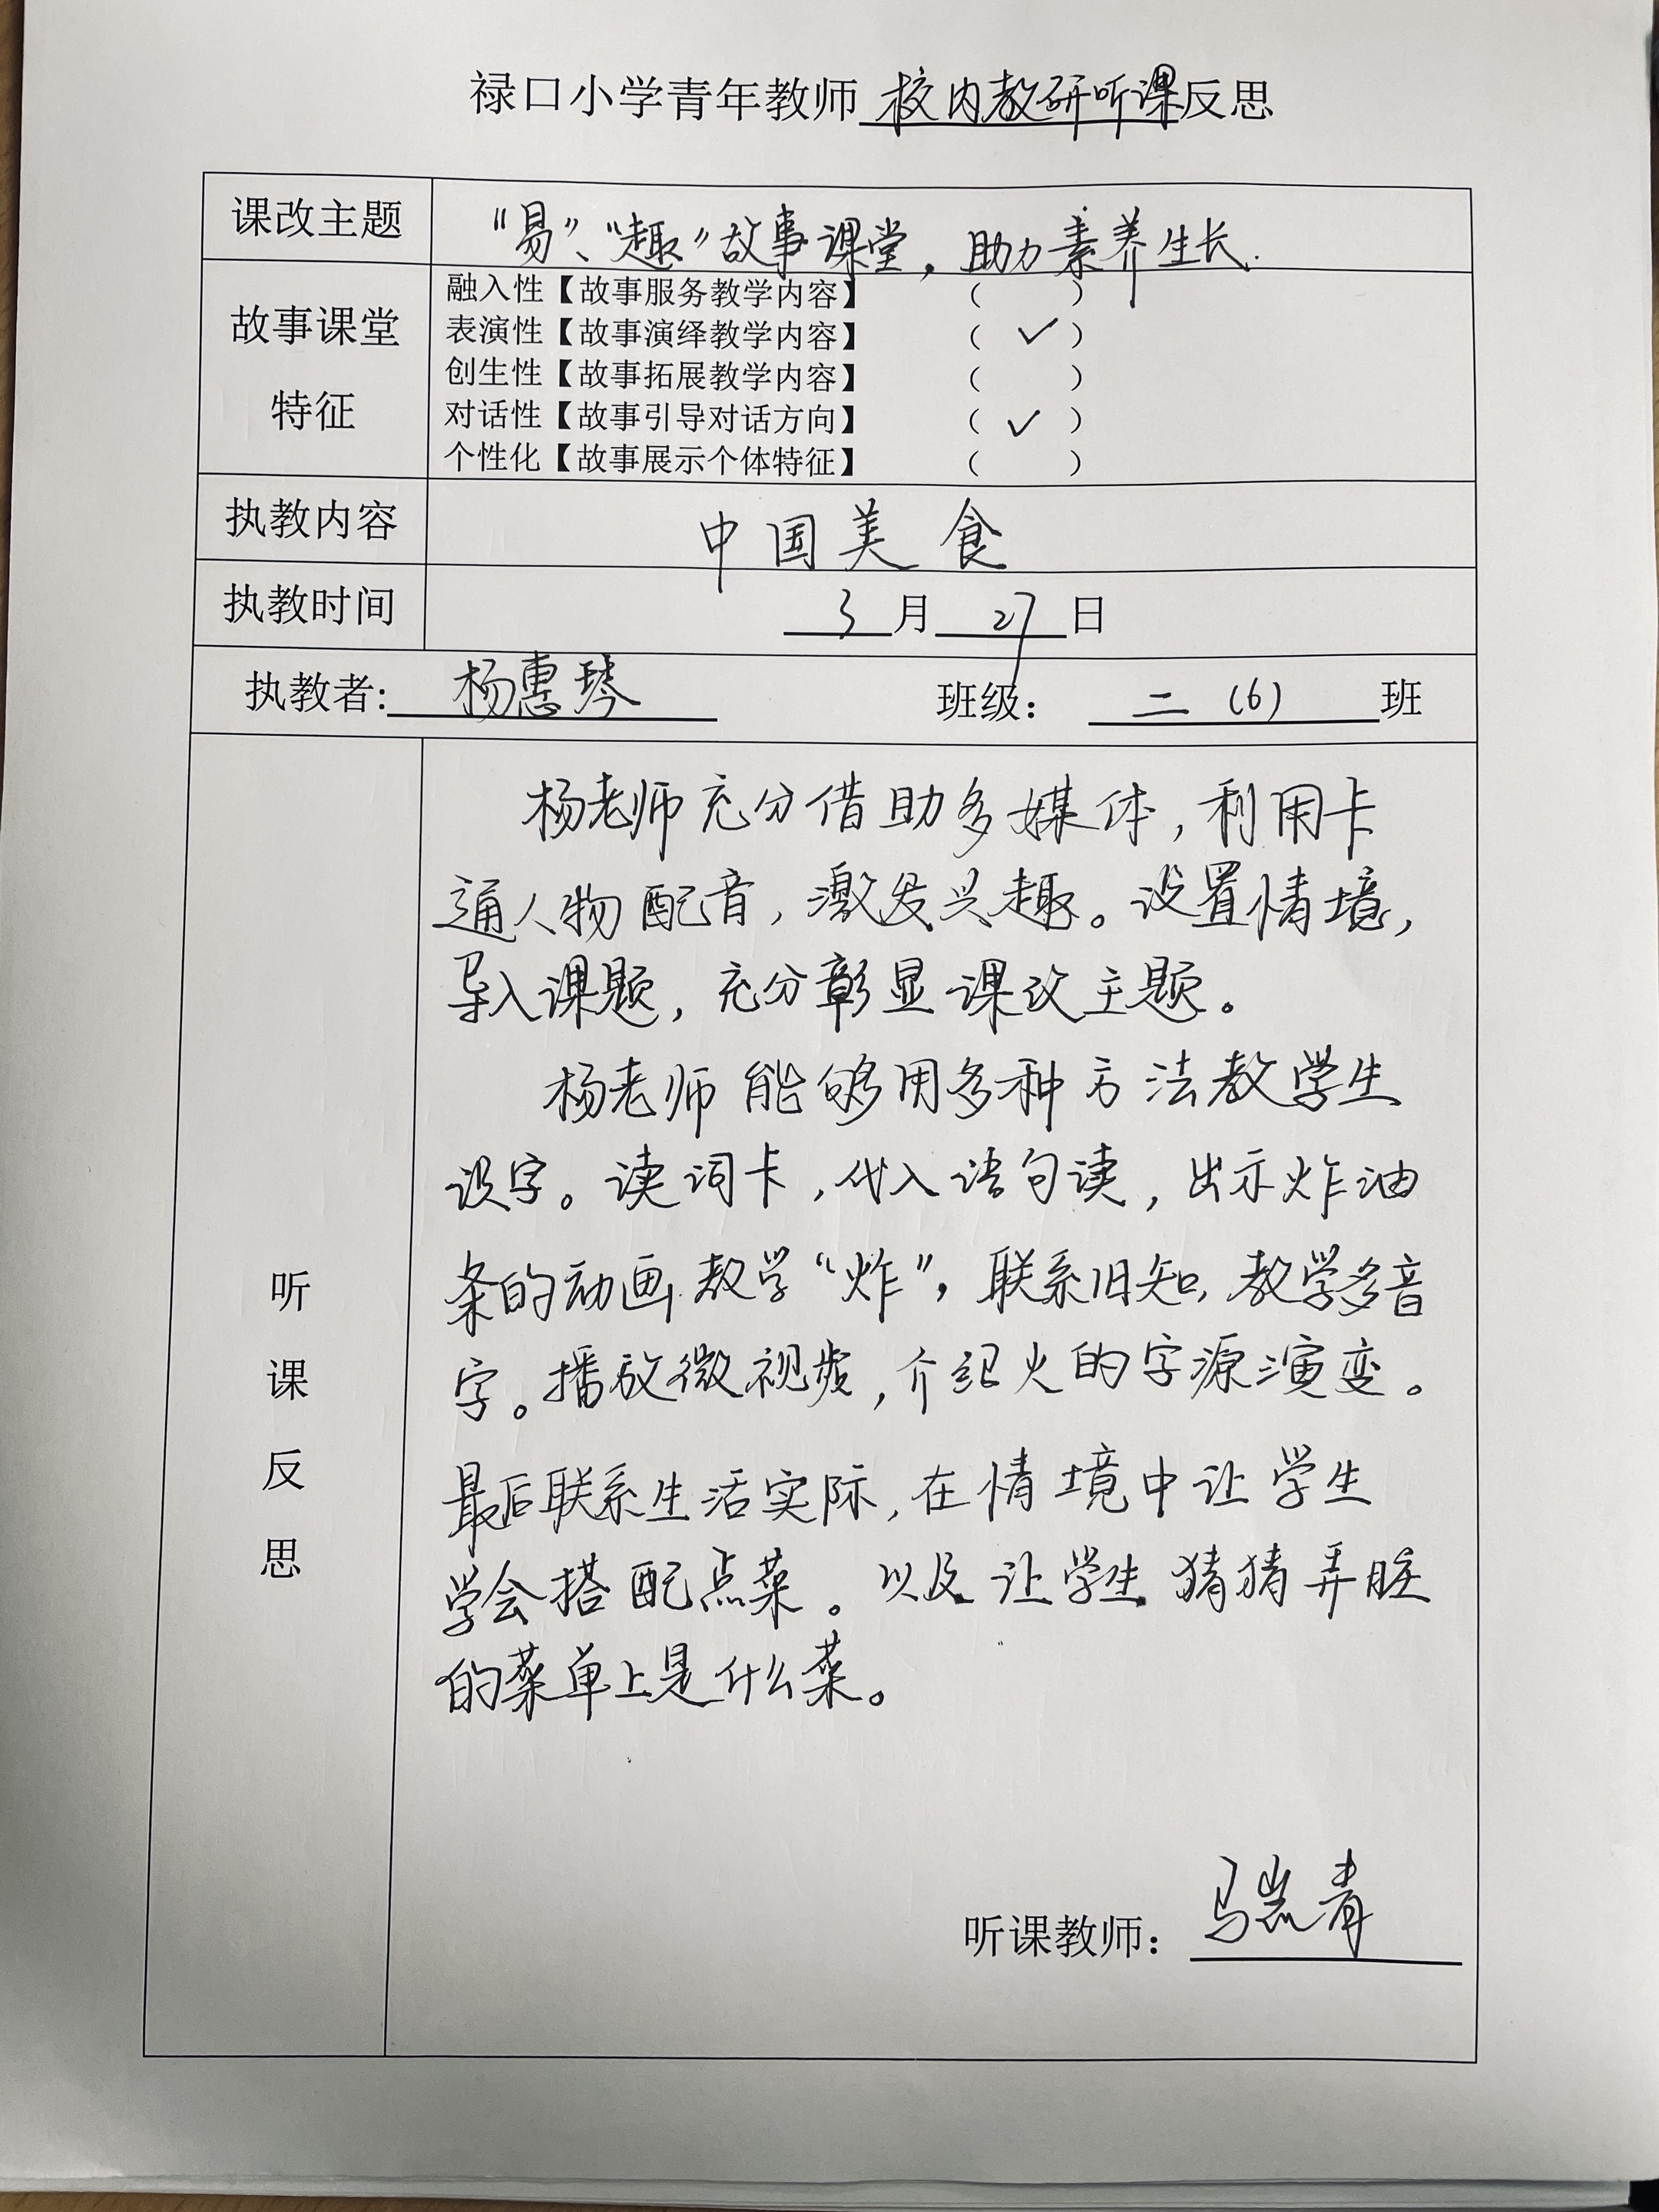 禄口小学青年教师 校内教研听课反思
课改主题 “易”、“趣”故事课堂，助力素养生长.
故事课堂特征
融入性【故事服务教学内容】 （ ）
表演性【故事演绎教学内容】 （ ✓ ）
创生性【故事拓展教学内容】 （ ）
对话性【故事引导对话方向】 （ ✓ ）
个性化【故事展示个体特征】 （ ）
执教内容 中国美食
执教时间 3月27日
执教者: 杨惠琴 班级： 二（6）班
听课反思
杨老师充分借助多媒体，利用卡
通人物配音，激发兴趣。设置情境，
导入课题，充分彰显课改主题。
杨老师能够用多种方法教学生
识字。读词卡，代入语句读，出示炸油
条的动画教学“炸”，联系旧知，教学多音
字。播放微视频，介绍火的字源演变。
最后联系生活实际，在情境中让学生
学会搭配点菜。以及让学生猜猜弄脏
的菜单上是什么菜。
听课教师： 马岚青